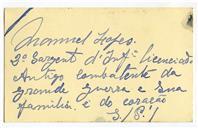 Manuel Lopes.
2º Sargent d'Infª licenciado
Antigo combatente da
grande guerra e sua
familia. é do coração